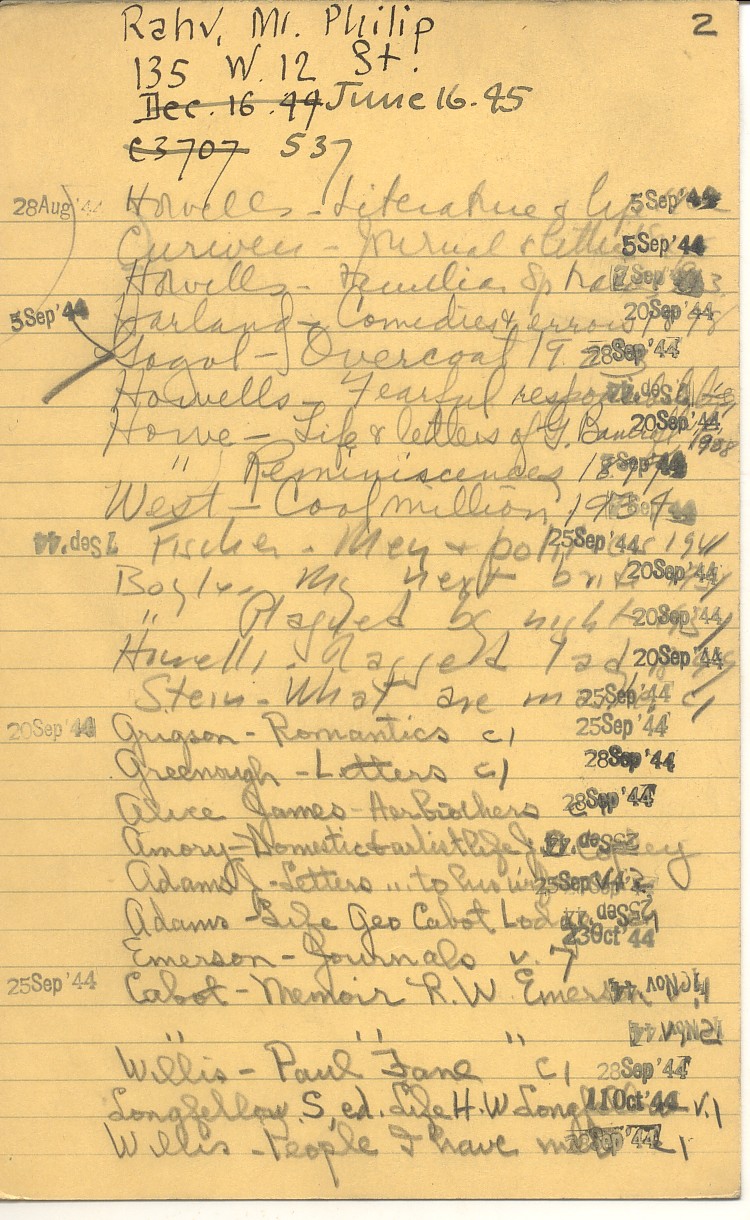 Rahv, Mr. Philip 2
135 W. 12 St.
Dec. 16 44 June 16. 45
c3707 537
28Aug'44 Howells - Literature & 5Sep'44
Curwen - Journal & letters 5Sep'44
Howells - Familiar Sp
5Sep'44 Harland - Comedies & errors 1898 20Sep'44
Gogol - Overcoat 19 28Sep'44
Howells - Fearful
Howe - Life & letters of G. Bancroft, 1908 20Sep'44
" Reminiscences 1899
West - Cool million, 1934
7Sep'44 Fischer - Men & politics 1941 25Sep'44
Boyle, My next bride 20Sep'44
" Plagued by night 20Sep'44
Howells - Ragged lady 20Sep'44
Stein - What are c1 25Sep'44
20Sep'44 Grigson - Romantics c1 25Sep'44
Greenough - Letters c1 28Sep'44
Alice James - Her brothers 28Sep'44
Amory - Domestic & artist life J. S. Copley 25Sep'44
Adams J. - Letters " to his wife 25Sep'44
Adams - Life Geo Cabot Lodge 25Sep'44
Emerson - Journals v. 7 23Oct'44
25Sep'44 Cabot - Memoir R.W. Emerson Nov'44
" " " 15Nov'44
Willis - Paul Fane c1 28Sep'44
Longfellow, S, ed. Life H.W Longfellow v.1 11Oct'44
Willis - People I have met c1 28Sep'44